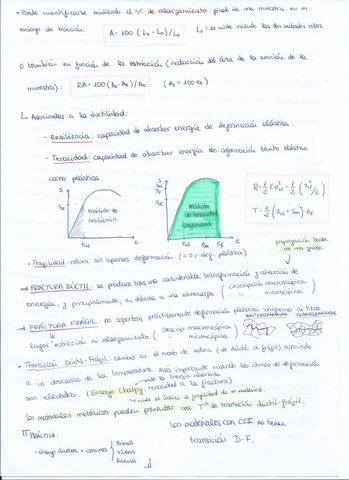 • Puede cuantificarse midiendo el % de alargamiento final de una muestra en un
ensayo de tracción: A = 100 (Lf - Lo)/Lo Lf: se mide uniendo las dos mitades rotas.
o también en función de la estricción (reducción del área de la sección de la
muestra): RA = 100 (Ao - Af)/Ao (Af = 100 ef)
↳ Asociadas a la ductilidad:
- Resiliencia: capacidad de absorber energía de deformación elástica.
- Tenacidad: capacidad de absorber energía de deformación tanto elástica
como plástica.
S
módulo de
resiliencia
e
S
Módulo
de tenacidad
e
T =
propagación lenta
de una grieta
• Fragilidad: rotura sin apenas deformación (<5% def. plástica)
→ FRACTURA DÚCTIL: se produce tras una considerable transformación y absorción de
energía, y principalmente, es debida a una sobrecarga. (Descripción macroscópica
" microscópica)
→ FRACTURA FRÁGIL: no soportan prácticamente deformación plástica uniforme ni tiene
INTERGRANULAR TRANSGRANULAR
lugar estricción ni alargamiento (Descrip. macroscópica
" microscópica)
• Transición Dúctil-Frágil: cambio en el modo de rotura (de dúctil a frágil) asociado
a un descenso de la temperatura. Más importante cuando los ritmos de deformación
son elevados. (Ensayo Charpy: tenacidad a la fractura).
mide la energía absorbida
mide el índice de fragilidad de un material.
Los materiales metálicos pueden presentar una Tª de transición dúctil-frágil.
PRÁCTICA
Los materiales con CCI no tienen
transición D-F.
• Ensayo dureza + comunes
Brinell
Vickers
Rockwell